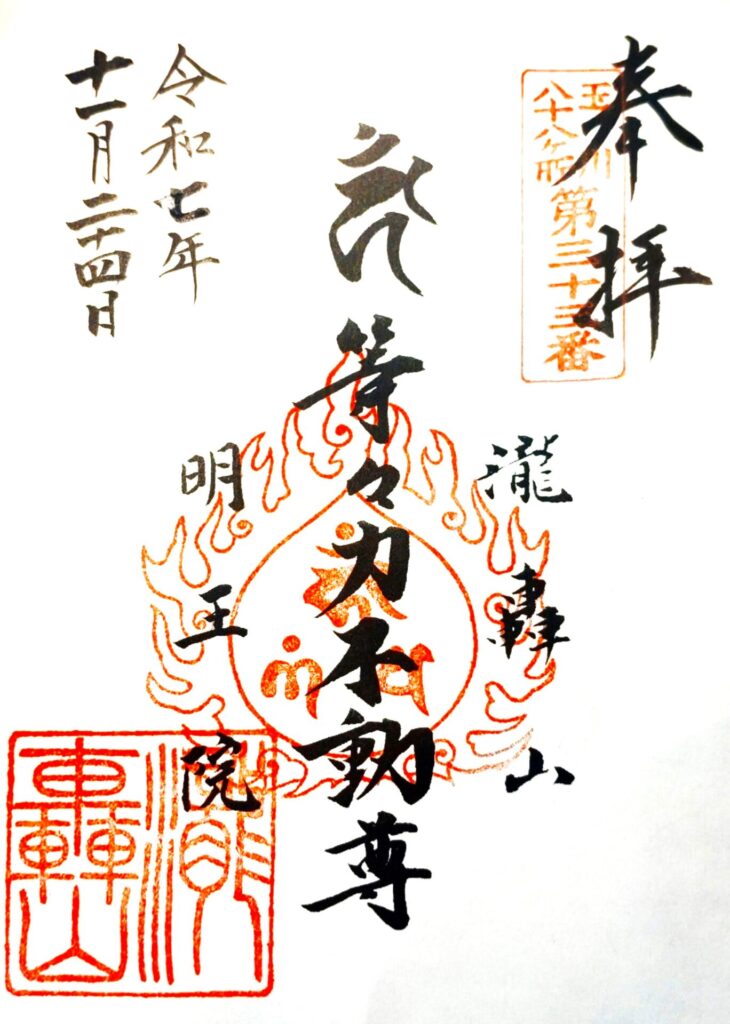 奉拝
玉川
八十八ヶ所
第三十三番
瀧轟山
等々力不動尊
明王院
令和七年
十一月二十四日
瀧
轟山